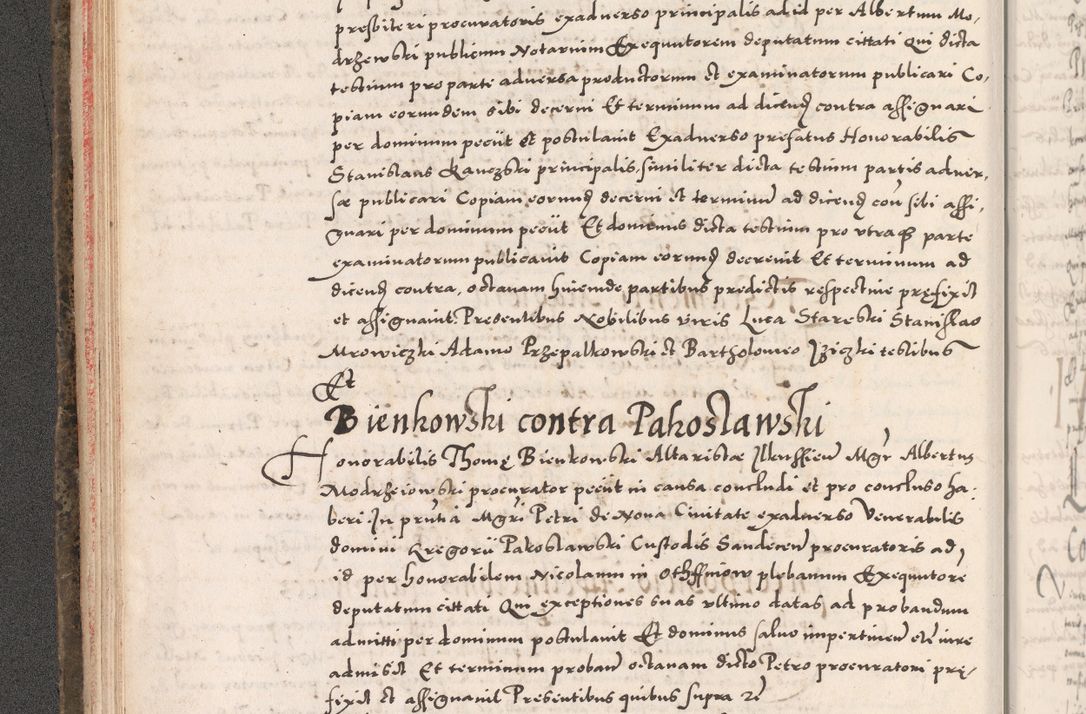 presbiteri procuratoris exadverso principalis ad id per Albertum Mo-
drzewski publicum Notarium Exequutorem deputatum cittati Qui dicta
testium pro parte adversa productorum et examinatorum publicari Co-
piam eorundem sibi decerni Et terminum ad dicend contra assignari
per dominum peciit et postulavit Exadverso prefatus Honorabilis
Stanislaus Kanczski principalis, similiter dicta testium partis adver-
sæ publicari Copiam eorund decerni et terminum ad dicend con sibi assi-
gnari per dominum peciit Et dominus dicta testium pro utraq parte
examinatorum publicavit Copiam eorund decrevit Et terminum ad
dicend contra, octavam hincinde partibus predictis respective pręfixit
et assignavit. Presentibus Nobilibus viris Luca Stareski Stanislao
Mrowiczki Adamo Przepalkowski et Bartholomeo Iziczki testibus
Et
Bienkowski contra Pakoslawski
Honorabilis Thomę Bienkowski Altaristæ Ilkussien Mgr Albertus
Modrzeiowski procurator peciit in causa concludi et pro concluso ha-
beri In pruntia Mgri Petri de Nova Civitate exadverso Venerabilis
domini Gregorii Pakoslawski Custodis Sandecen procuratoris ad
id per honorabilem Nicolaum in Othffinow plebanum Exequutore
deputatum cittati Qui exceptiones suas ultimo datas, ad probandum
admitti per dominum postulavit Et dominus salvo impertinen etc iure
admisit Et terminum proban octavam dicto Petro procuratori prę-
fixit et assignavit Presentibus quibus supra